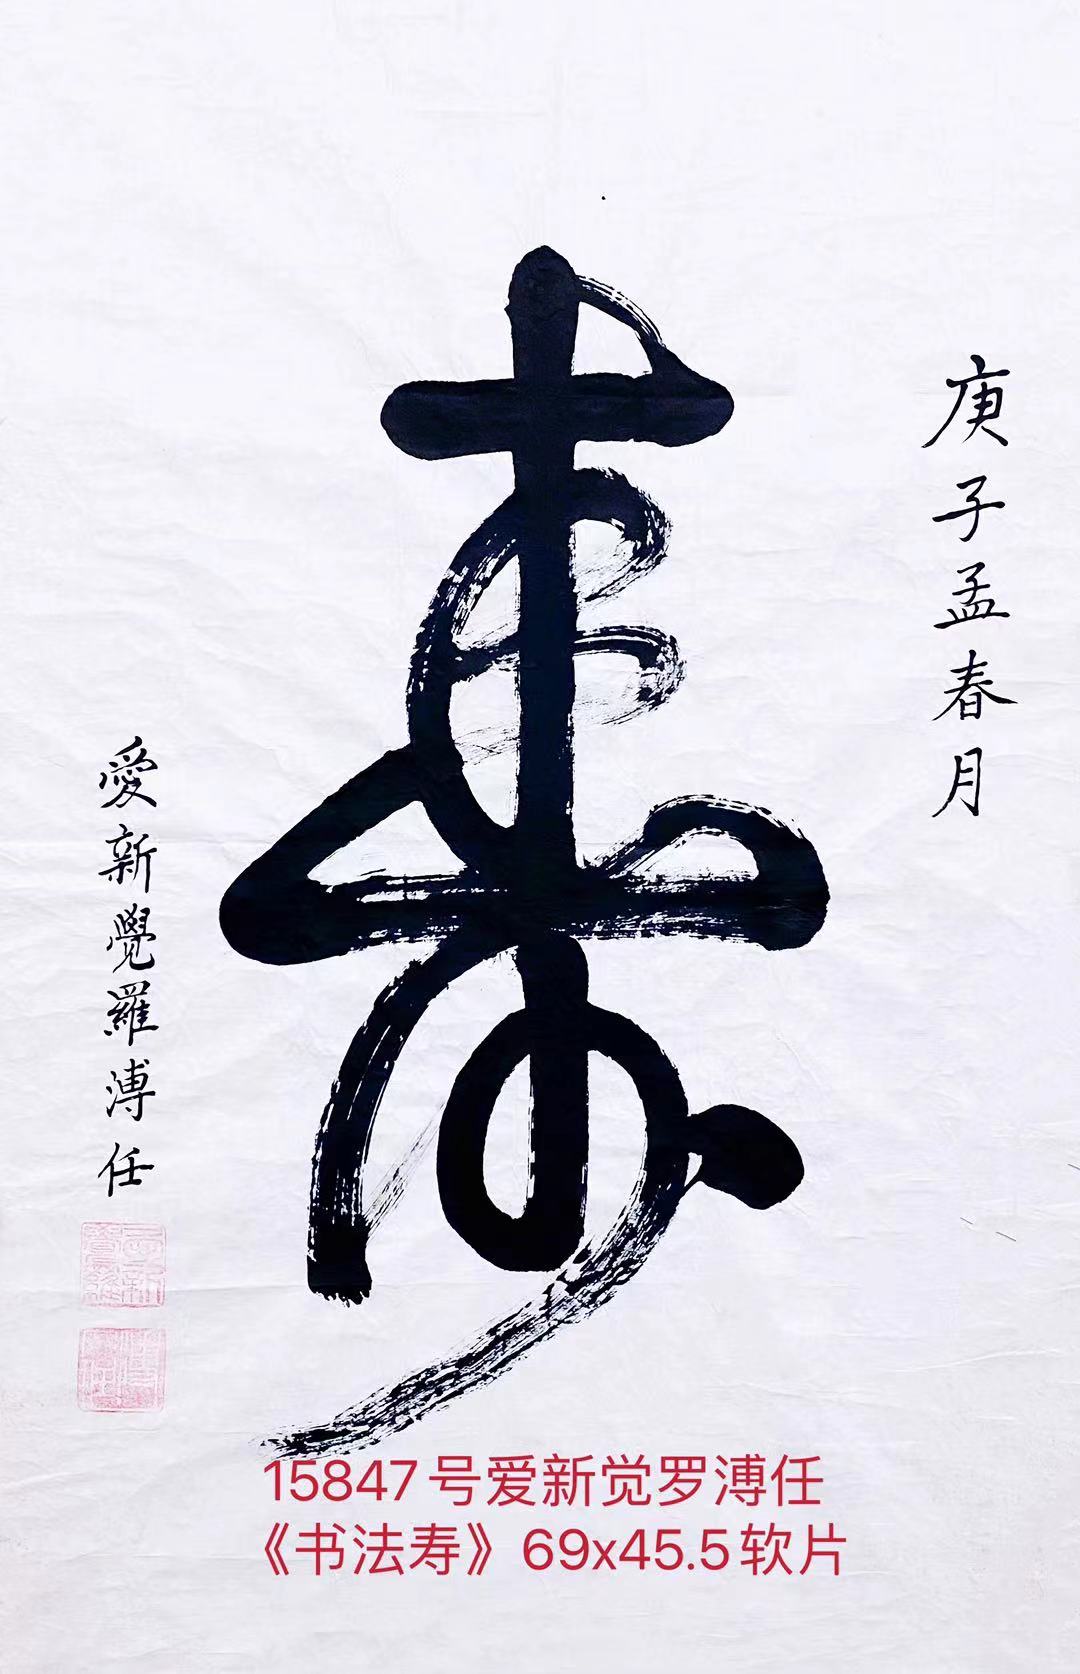 壽
庚子孟春月
愛新覺羅溥任
15847号爱新觉罗溥任
《书法寿》69x45.5软片